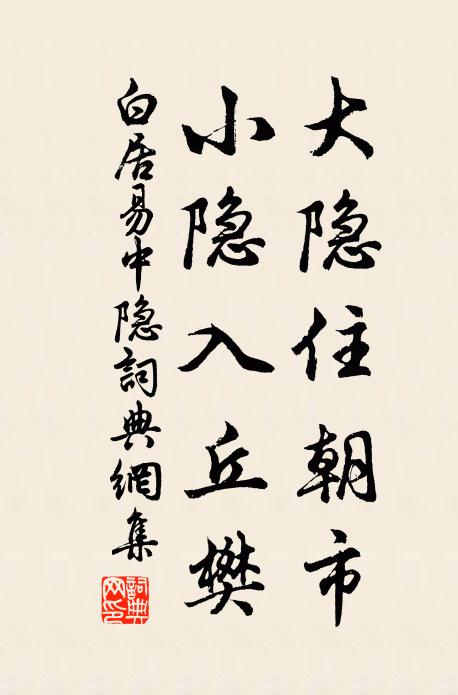 大隐住朝市
小隐入丘樊
白居易中隐詞典網集
詞典
网印